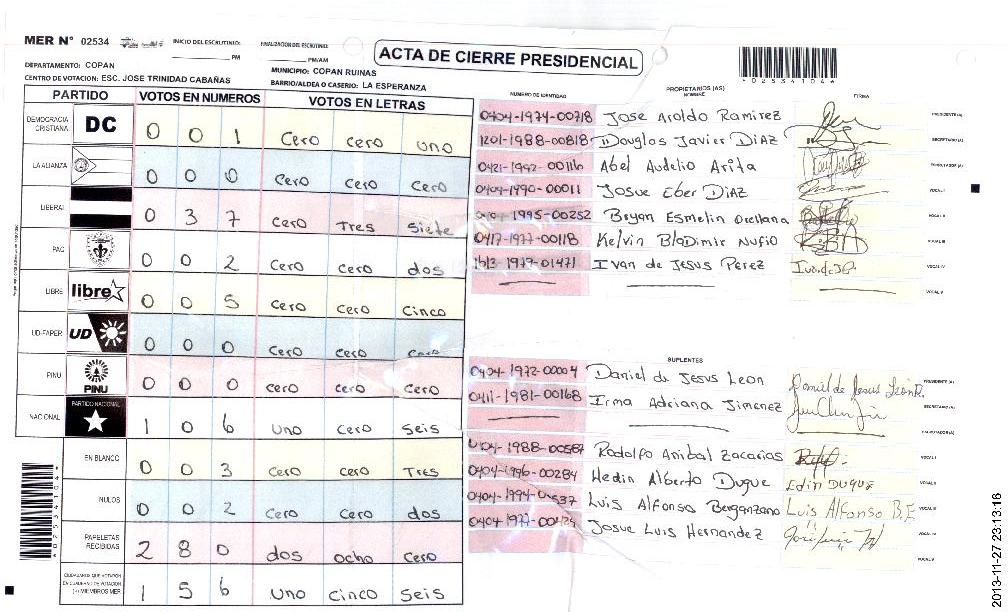 MER Nº 02534
INICIO DEL ESCRUTINIO: ____ PM
FINALIZACION DEL ESCRUTINIO: ____ PM/AM
ACTA DE CIERRE PRESIDENCIAL
*02534104*
DEPARTAMENTO: COPAN
MUNICIPIO: COPAN RUINAS
CENTRO DE VOTACION: ESC. JOSE TRINIDAD CABAÑAS
BARRIO/ALDEA O CASERIO: LA ESPERANZA
PARTIDO VOTOS EN NUMEROS VOTOS EN LETRAS
DEMOCRACIA CRISTIANA DC 0 0 1 cero cero uno
LA ALIANZA 0 0 0 cero cero cero
LIBERAL 0 3 7 cero Tres siete
PAC 0 0 2 cero cero dos
LIBRE libre 0 0 5 cero cero cinco
UD-FAPER UD 0 0 0 cero cero cero
PINU PINU 0 0 0 cero cero cero
NACIONAL PARTIDO NACIONAL 1 0 6 uno cero seis
EN BLANCO 0 0 3 cero cero Tres
NULOS 0 0 2 cero cero dos
PAPELETAS RECIBIDAS 2 8 0 dos ocho cero
CIUDADANOS QUE VOTARON EN CUADERNO DE VOTACION (+) MIEMBROS MER 1 5 6 uno cinco seis
*02534104*
PROPIETARIOS (AS)
NUMERO DE IDENTIDAD NOMBRE FIRMA
0404-1974-00718 Jose Aroldo Ramirez PRESIDENTE(A)
1201-1988-00818 Douglas Javier Diaz SECRETARIO(A)
0421-1992-00116 Abel Audelio Arita ESCRUTADOR (A)
0404-1990-00011 Josue Eber Diaz VOCAL I
1995-00252 Bryan Esmelin Orellana VOCAL II
0417-1977-00118 Kelvin Bladimir Nufio VOCAL III
1613-1979-01471 Ivan de Jesus Perez VOCAL IV
VOCAL V
SUPLENTES
0404-1972-00004 Daniel de Jesus Leon Daniel de Jesus León R. PRESIDENTE (A)
0411-1981-00168 Irma Adriana Jimenez SECRETARIO (A)
ESCRUTADOR (A)
0404-1988-00587 Rodolfo Anibal Zacarias VOCAL I
0404-1996-00284 Hedin Alberto Duque Edin DUQUE VOCAL II
0404-1994- Luis Alfonso Berganzano Luis Alfonso B.F VOCAL III
0404-1977- Josue Luis Hernandez VOCAL IV
VOCAL V
2013-11-27 23:13:16